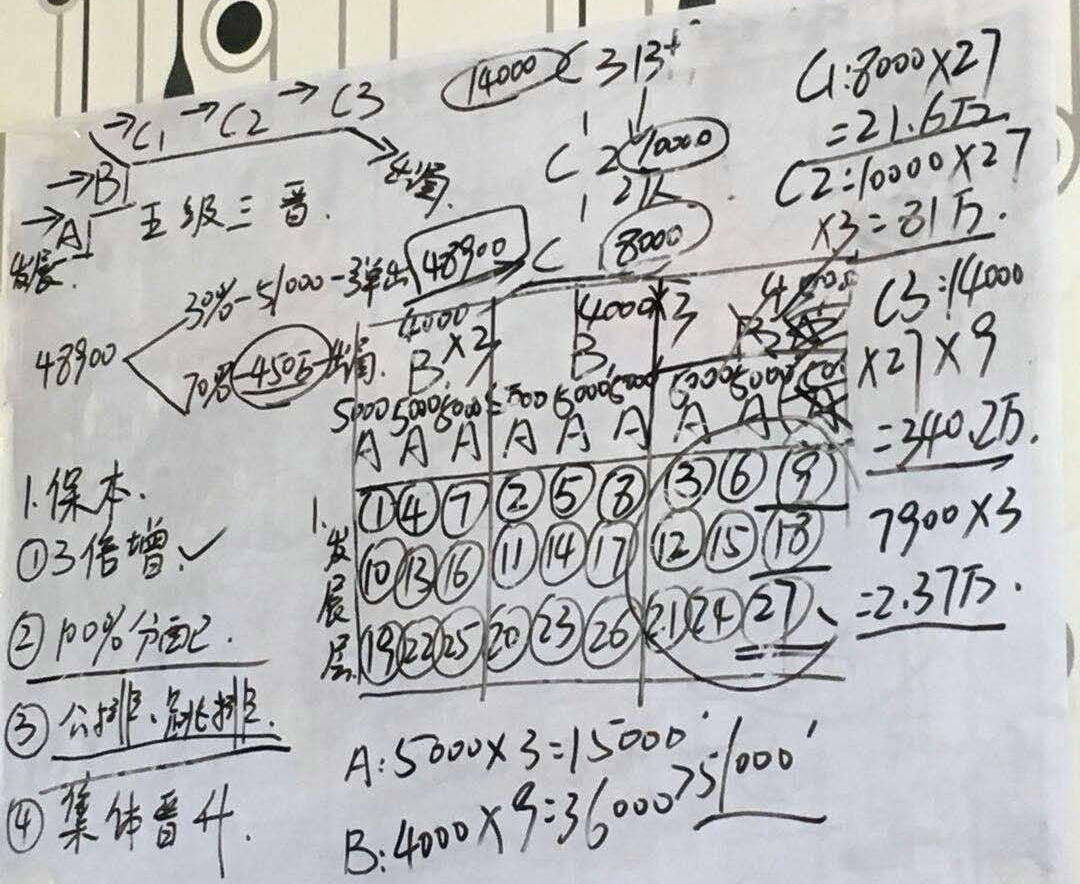 →C1→C2→C3
→B1
→A1 五级三晋.
→出局.
发展.
14000 C3 13+
C2 10000
12K
C 8000
C1:8000×27
=21.6万
C2:10000×27
×3=81万.
C3:14000
×27×9
=340.2万.
7900×3
=2.37万.
48900
30%-51000-弹出 48900
70%-450万-出局.
4000 4000×3
B ×3 B
5000 5000 5000 5000 5000 5000 5000
A A A A A A A A A
1.发展层
① ④ ⑦ ② ⑤ ⑧ ③ ⑥ ⑨
⑩ ⑬ ⑯ ⑪ ⑭ ⑰ ⑫ ⑮ ⑱
⑲ ㉒ ㉕ ⑳ ㉓ ㉖ ㉑ ㉔ ㉗
1.保本.
①3倍增.✓
②100%分配.
③公排.跳排.
④集体晋升.
A:5000×3=15000
B:4000×9=36000>51000